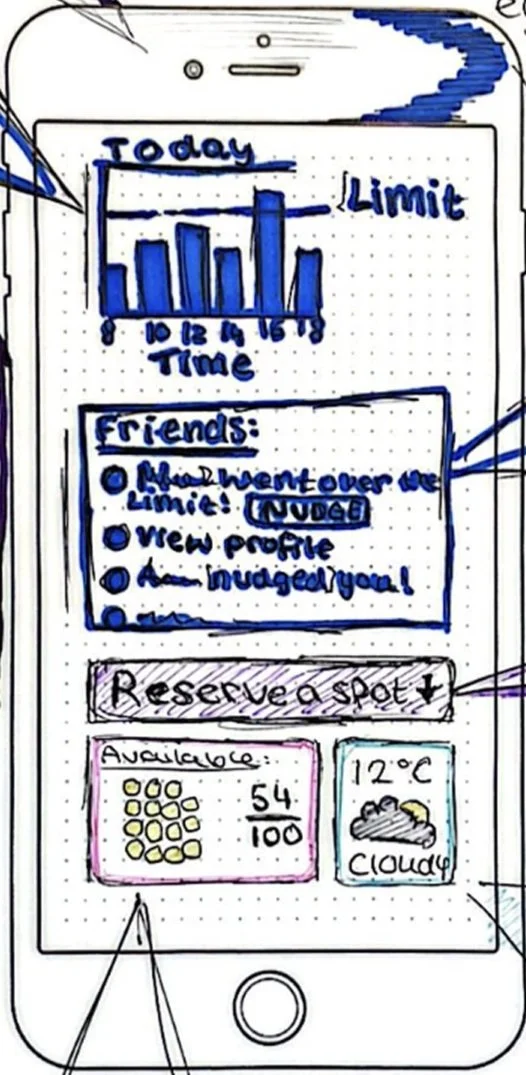 Today
Limit
8 10 12 14 16 18
Time
Friends:
went over the
Limit! NUDGE
View profile
nudged you!
Reserve a spot
Available:
54
100
12°C
Cloudy